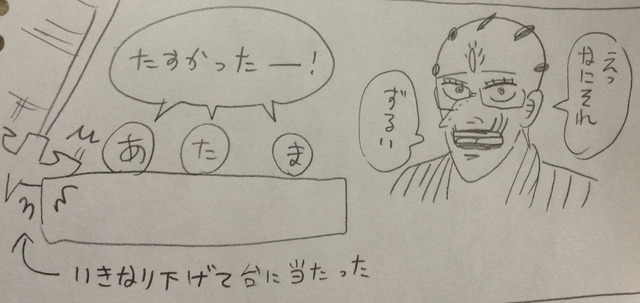 たすかったー！
あ
た
ま
えっ
なにそれ
ずるい
いきなり下げて台に当たった